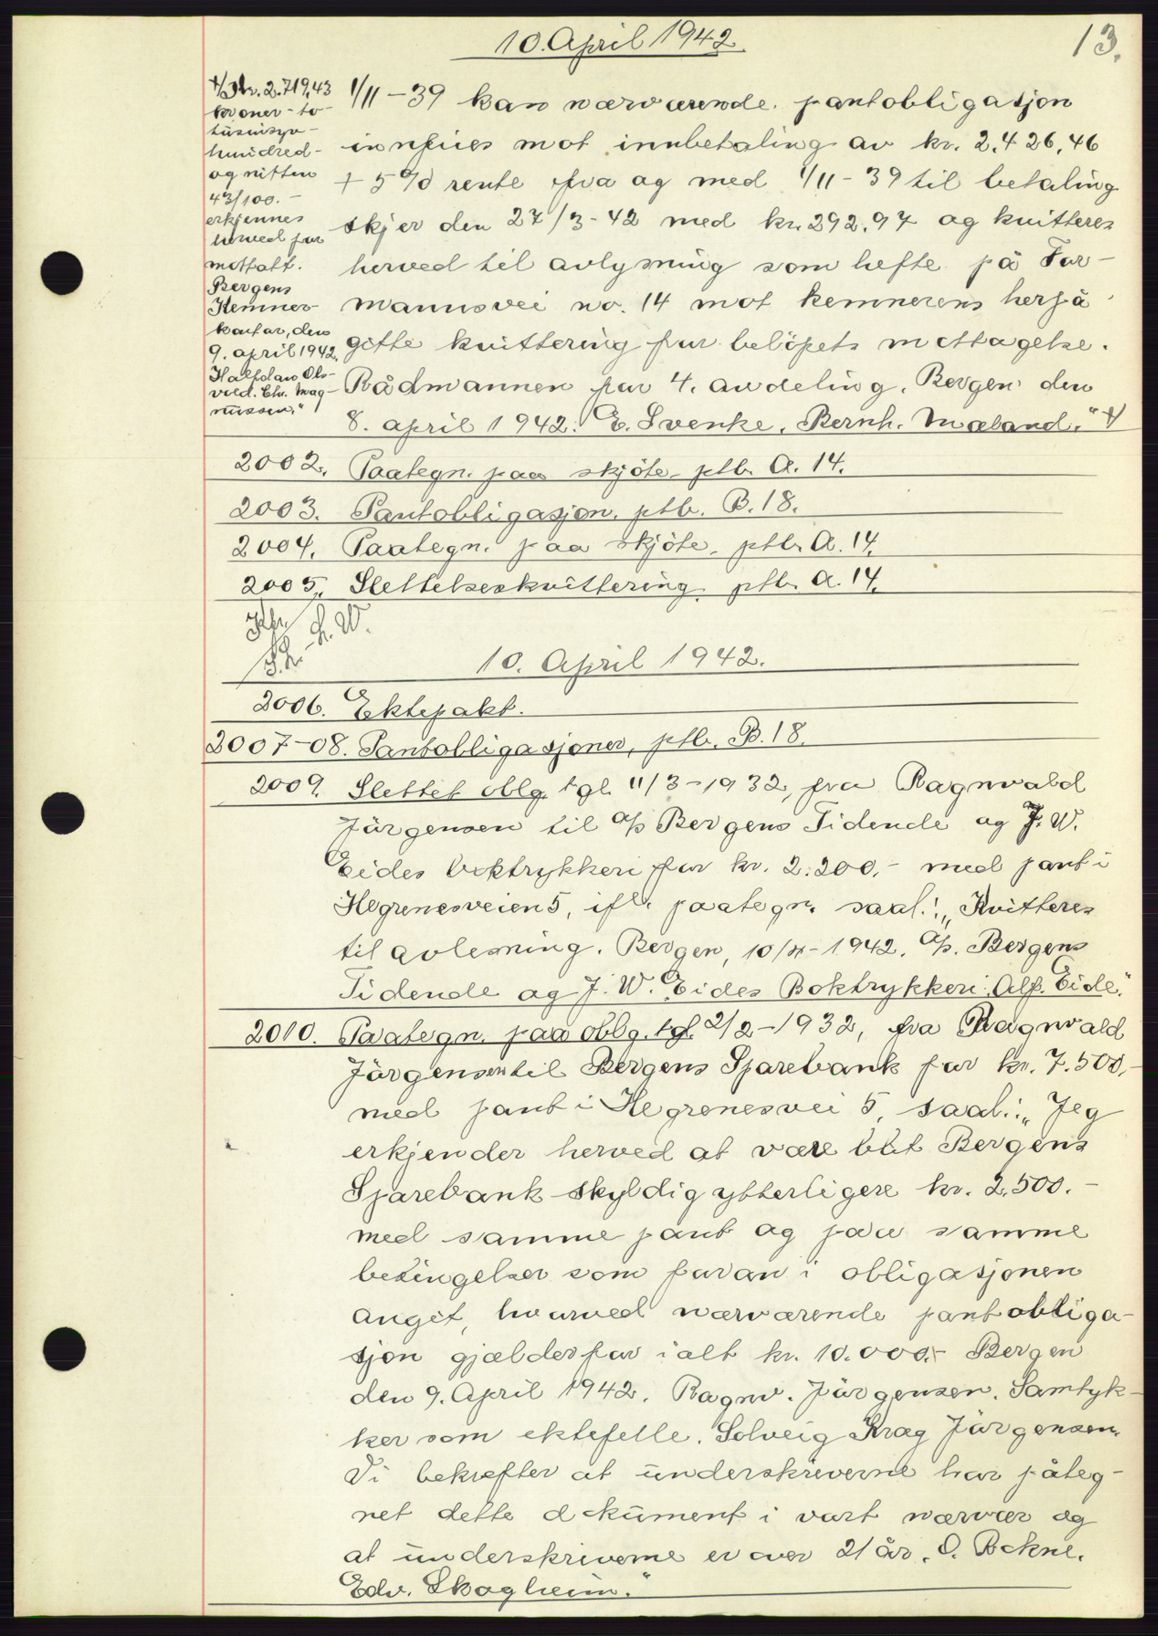 10. April 1942.
13.
∀/ Kr. 2.719,43
kroner-to-
tusensyv-
hundred-
og nitten
43/100.-
erkjennes
herved for
mottatt.
Bergens
Kemner-
kontor, den
9. april 1942.
Halfdan Ols-
vold. Chr. Mag-
nussen."
1/11-39 kan nærværende pantobligasjon
innfries mot innbetaling av kr. 2.426,46
+ 5% rente fra og med 1/11-39 til betaling
skjer den 27/3-42 med kr. 292,97 og kvitteres
herved til avlysning som hefte på For-
mannsvei no. 14 mot kemnerens herpå
gitte kvittering for beløpets mottagelse.
Rådmannen for 4. avdeling, Bergen den
8. april 1942. E. Svenke, Bernh. Mæland." ∀
2002. Paategn. paa skjöte, ptb. A. 14.
2003. Pantobligasjon, ptb. B. 18.
2004. Paategn. paa skjöte, ptb. A. 14.
2005. Slettelseskvittering ptb. A. 14.
L. W.
10. April 1942.
2006. Ektepakt.
2007-08. Pantobligasjoner, ptb. B. 18.
2009. Slettet oblg. tgl. 11/3-1932, fra Ragnvald
Jörgensen til A/S Bergens Tidende og J. W.
Eides boktrykkeri for kr. 2.200.- med pant i
Hegrenesveien 5, ifl. paategn. saal.: "Kvitteres
til avlesning. Bergen, 10/4-1942. A/S. Bergens
Tidende og J. W. Eides Boktrykkeri: Alf. Eide."
2010. Paategn. paa oblg. tgl. 2/2-1932, fra Ragnvald
Jörgensen til Bergens Sparebank for kr. 7.500,-
med pant i Hegrenesvei 5, saal.: "Jeg
erkjender herved at være blit Bergens
Sparebank skyldig ytterligere kr. 2.500.-
med samme pant og paa samme
betingelser som foran i obligasjonen
anget, hvorved nærværende pantobliga-
sjon gjælder for ialt kr. 10.000.- Bergen
den 9. April 1942. Ragnv. Jörgensen. Samtyk-
ker som ektefelle. Solveig Krag Jörgensen.
Vi bekrefter at underskriverne har påteg-
net dette dokument i vårt nærvær og
at underskriverne er over 21 år. O. Bokne.
Edv. Skogheim."